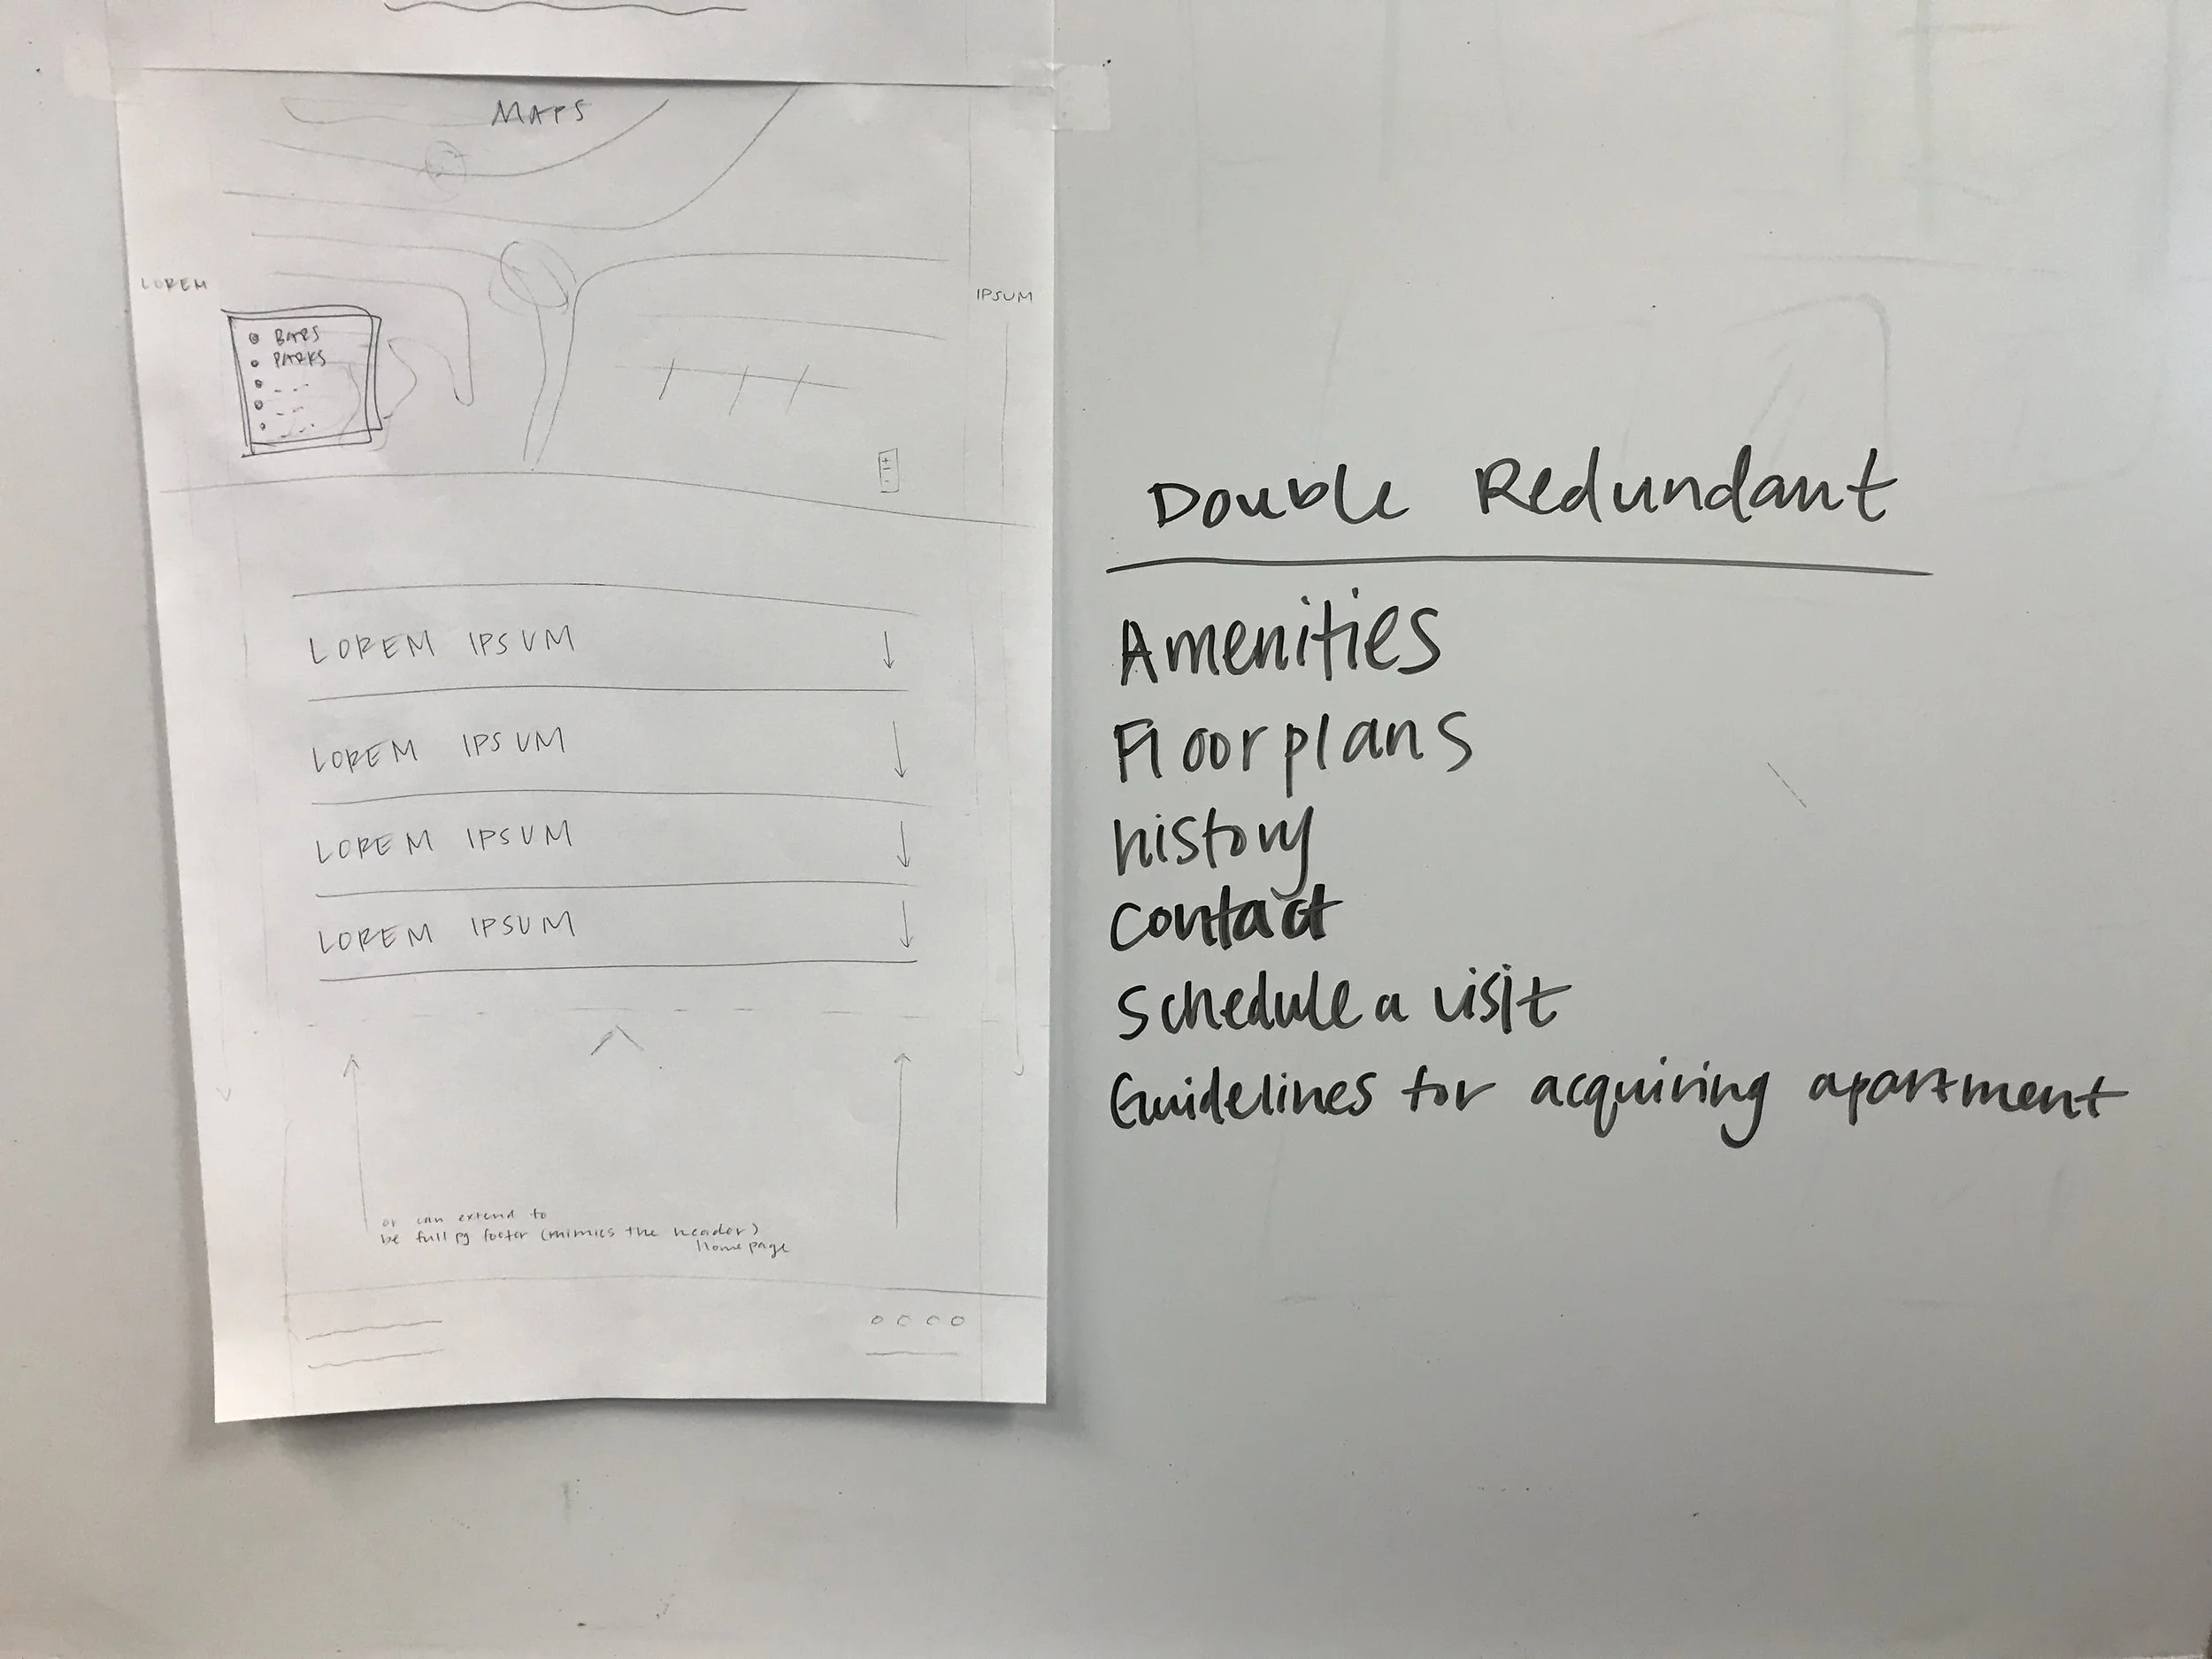 MAPS
LOREM
IPSUM
BARS
PARKS
LOREM IPSUM
LOREM IPSUM
LOREM IPSUM
LOREM IPSUM
or can extend to
be full pg footer (mimics the header)
Homepage
Double Redundant
Amenities
Floorplans
history
Contact
Schedule a visit
Guidelines for acquiring apartment